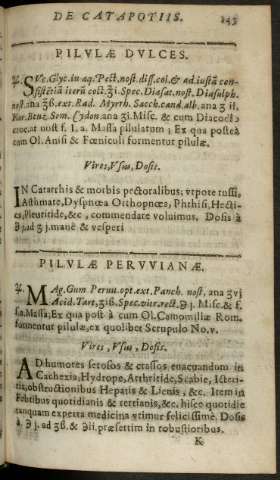 DE CATAPOTIIS. 145
PILVLÆ DVLCES.
℞. SVc. Glyc. in aq. Pect. nost. diss. col. & ad iustã con-
sistẽtiã iterũ coct. ʒi. Spec. Diasat. nost. Diasulph.
nost. ana ʒß. ext. Rad. Myrrh. Sacch. cand. alb. ana ʒ ii.
Flor. Benz. Sem. Cydon. ana ʒi. Misc. & cum Diacod.
croc. at nost f. l. a. Massa pilulatum; Ex qua posteà
cum Ol. Anisi & Fœniculi formentur pilulæ.
Vires, Vsus, Dosis.
IN Catarrhis & morbis pectoralibus; vtpote tussi,
Asthmate, Dyspnœa Orthopnœa, Phthisi, Hecti-
ca, Pleuritide, &c, commendate volvimus. Dosis à
℈ j. ad ʒ j. manè & vesperi
PILVLÆ PERVVIANÆ.
℞. MAg. Gum Peruu. opt. ext. Panch. nost. ana ʒvj
Acid. Tart. ʒiß. Spec. vitr. rect. ℈ j. Misc. & f.
l. a. Massa; Ex qua post à cum Ol. Camomillæ Rom.
formentur pilulæ, ex quolibet Scrupulo No. v.
Vires, Vsus, Dosis.
AD humores serosos & crassos euacuandum in
Cachexia, Hydrope, Arthritide, Scabie, Icteri-
tia, obstructionibus Hepatis & Lienis, &c. Item in
Febribus quotidianis & tertianis, &c. hisce quotidie
tanquam experta medicina vtimur felicissimè. Dosis
à ℈ j. ad ʒß. & ℈ii. præsertim in robustioribus.
K